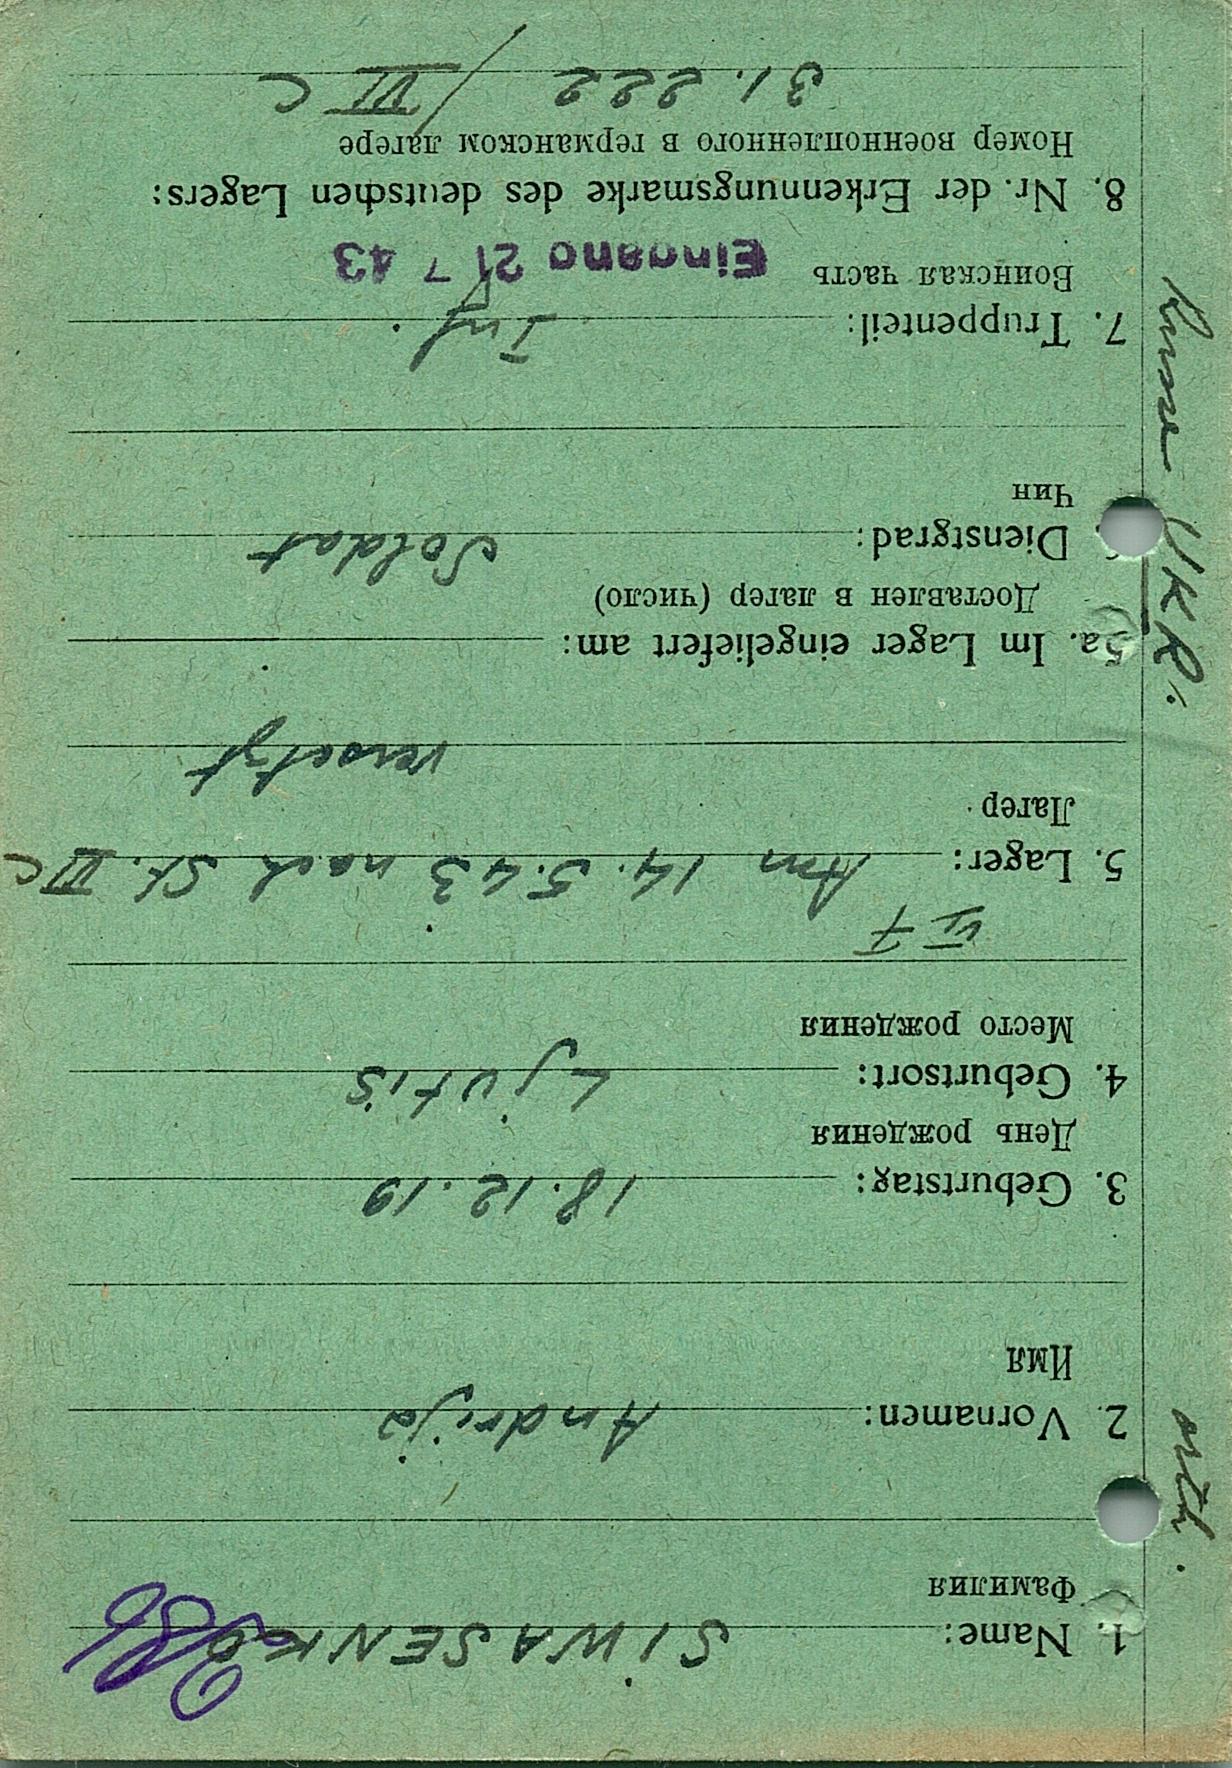 1. Name: SIWASENKO
Фамилия
2. Vornamen: Andrija
Имя
3. Geburtstag: 18.12.19
День рождения
4. Geburtsort: Ljutis
Место рождения
VI F
5. Lager: Am 14.5.43 nach St. VI C
Лагер
versetzt
5a. Im Lager eingeliefert am:
Доставлен в лагер (число)
Dienstgrad: Soldat
Чин
7. Truppenteil: Inf.
Воинская часть Eingang 21 7 43
8. Nr. der Erkennungsmarke des deutschen Lagers:
Номер военнопленного в германском лагере
31.222 / VI C
orth.
Russe UKR.